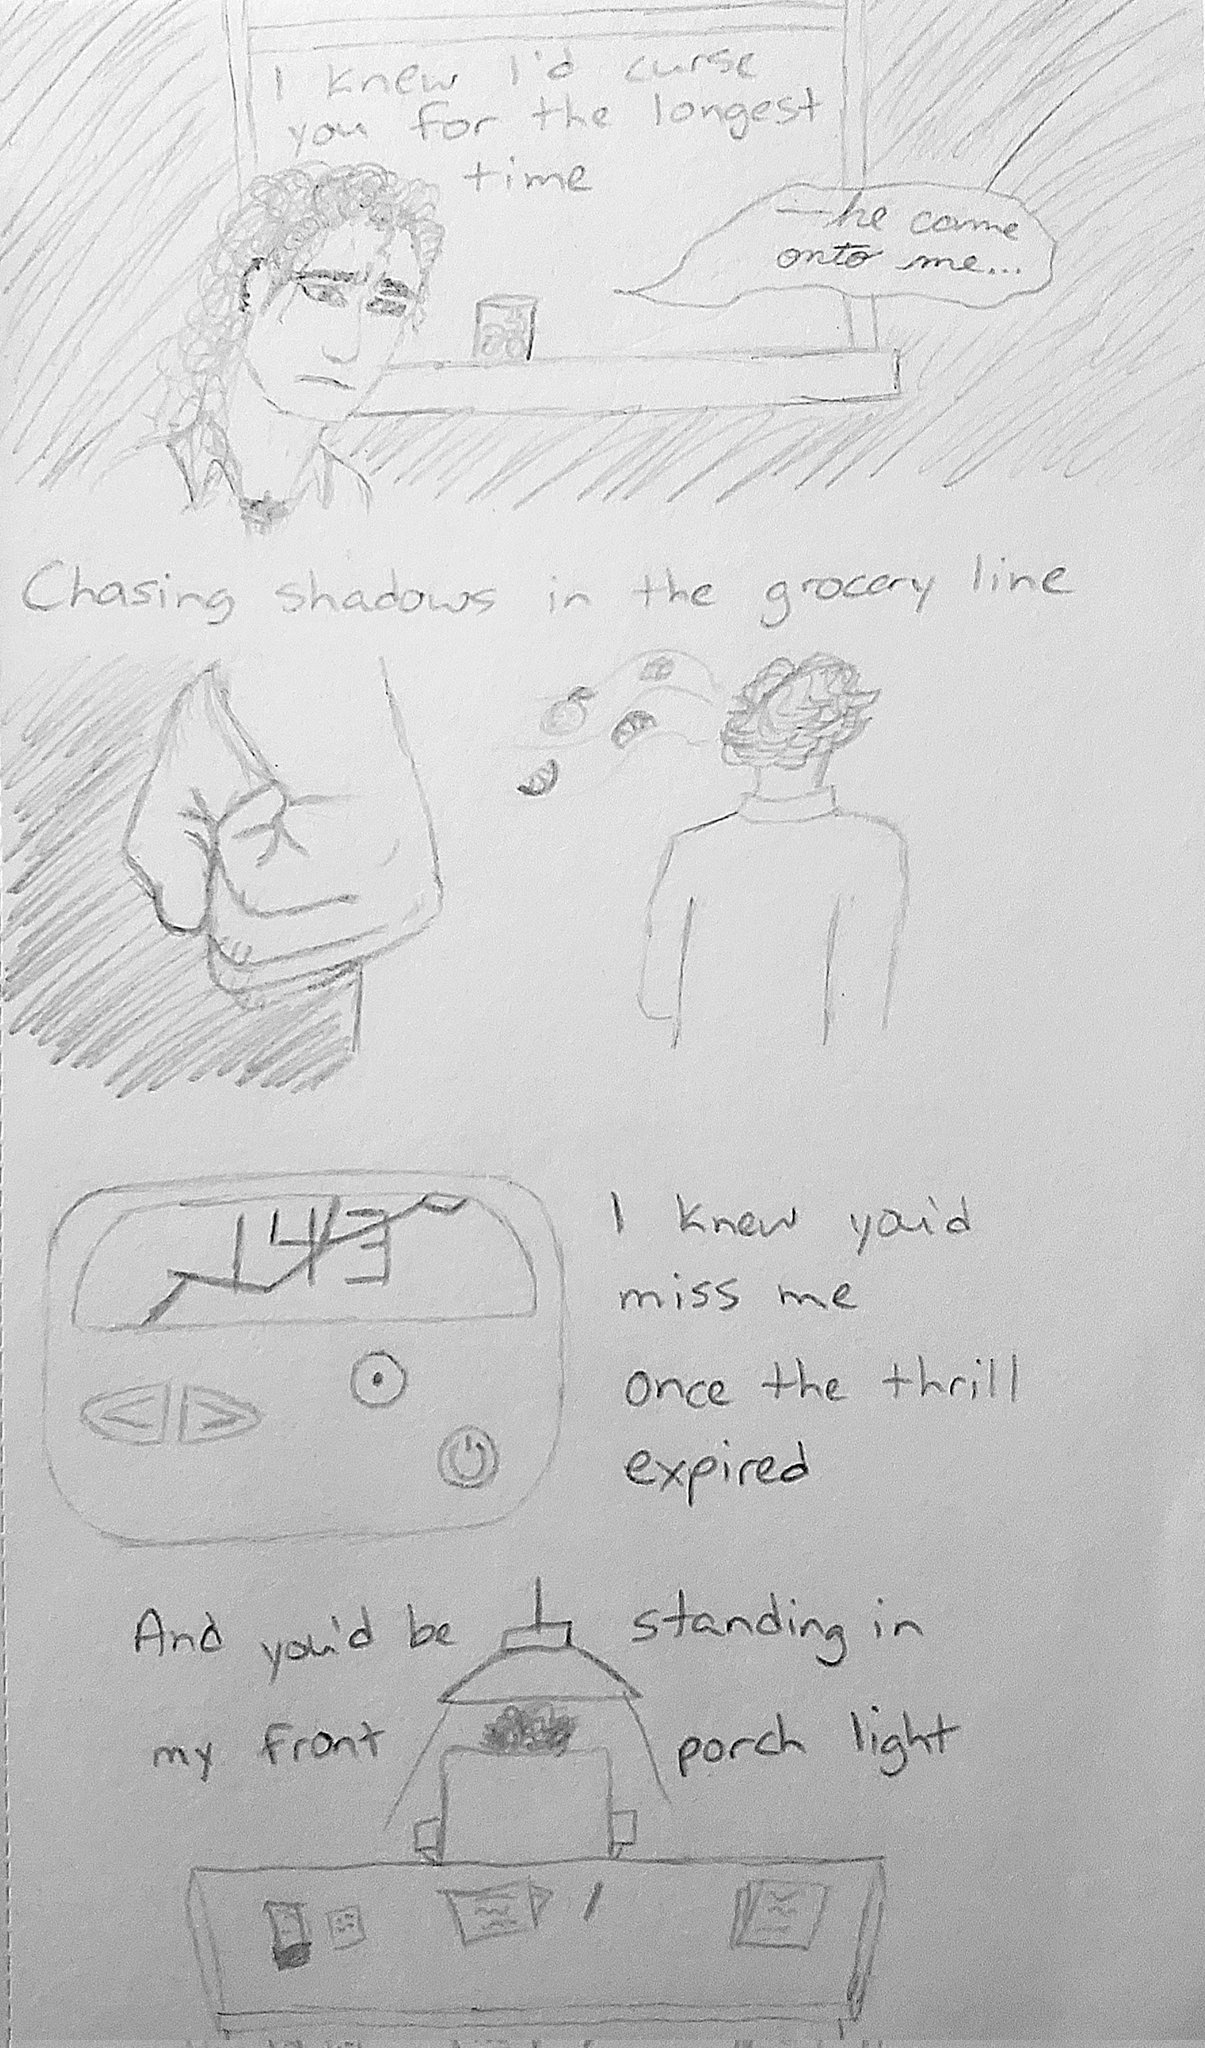 I knew I'd curse
you for the longest
time
—he came
onto me...
Chasing shadows in the grocery line
143
I knew you'd
miss me
once the thrill
expired
And you'd be standing in
my front porch light